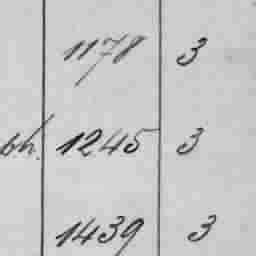 1178 3
1245 3
1439 3